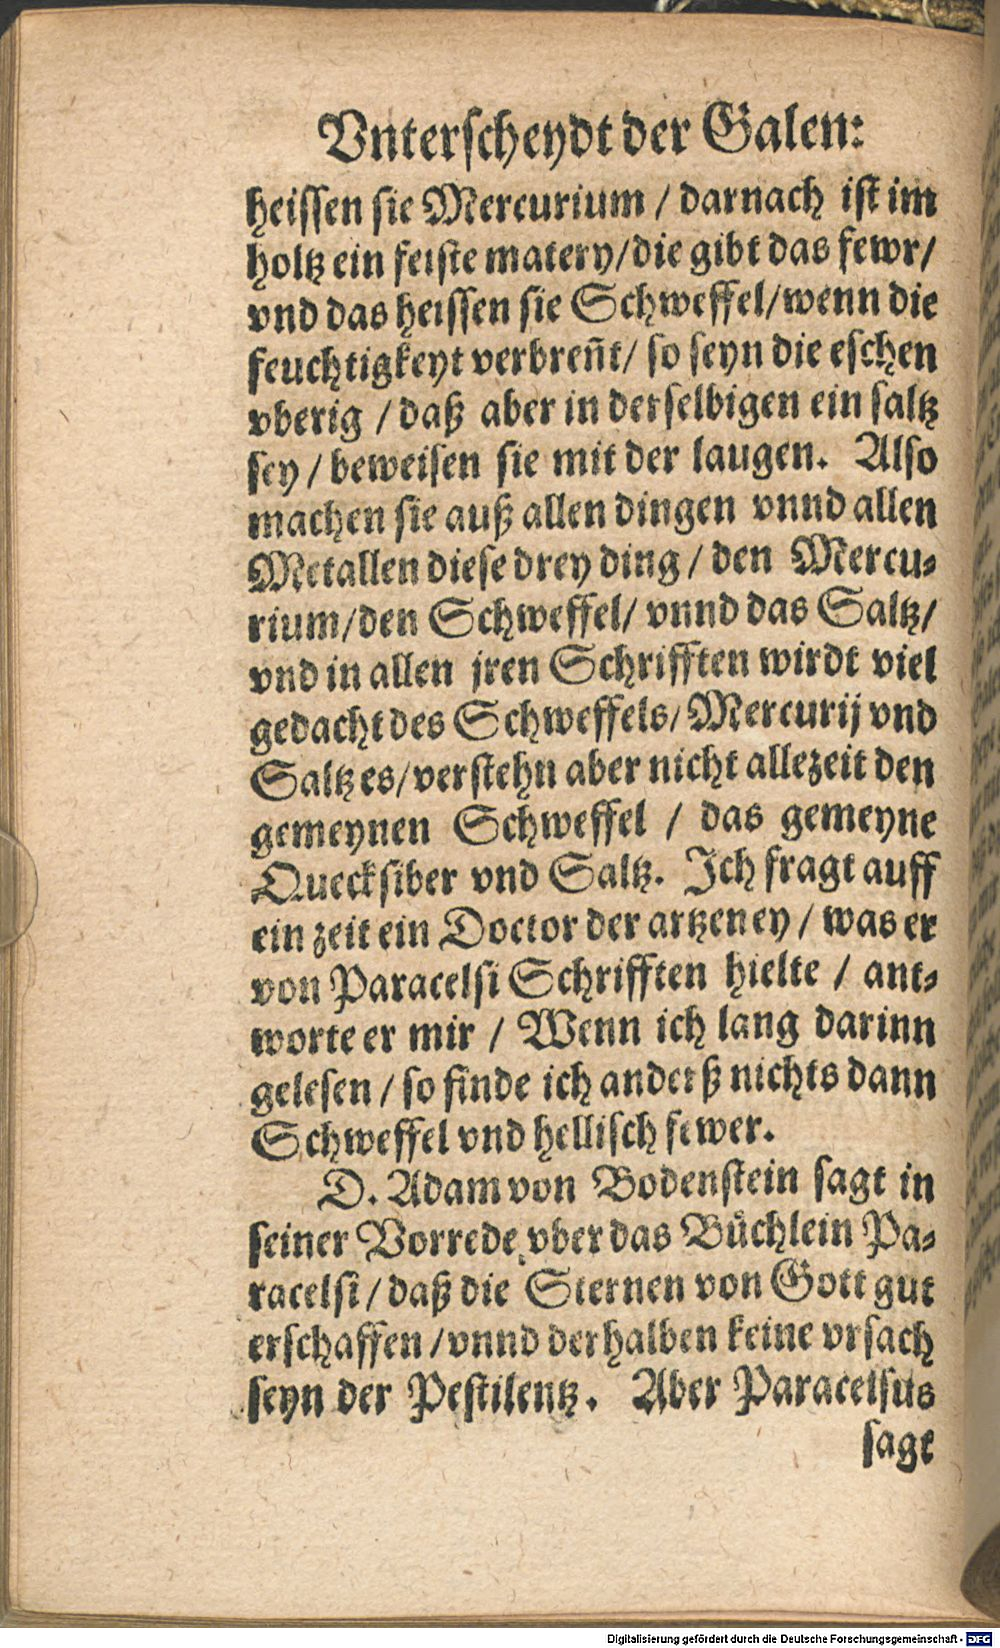 Vnterscheydt der Galen:
heissen sie Mercurium / darnach ist im
holtz ein feiste matery/die gibt das fewr/
vnd das heissen sie Schweffel/wenn die
feuchtigkeyt verbreñt/ so seyn die eschen
vberig / daß aber in derselbigen ein saltz
sey / beweisen sie mit der laugen. Also
machen sie auß allen dingen vnnd allen
Metallen diese drey ding / den Mercu-
rium/den Schweffel/ vnnd das Saltz/
vnd in allen jren Schrifften wirdt viel
gedacht des Schweffels/Mercurij vnd
Saltzes/verstehn aber nicht allezeit den
gemeynen Schweffel / das gemeyne
Quecksiber vnd Saltz. Ich fragt auff
ein zeit ein Doctor der artzeney / was er
von Paracelsi Schrifften hielte / ant-
worte er mir / Wenn ich lang darinn
gelesen / so finde ich anderß nichts dann
Schweffel vnd hellisch fewer.
D. Adam von Bodenstein sagt in
seiner Vorrede vber das Bůchlein Pa-
racelsi / daß die Sternen von Gott gut
erschaffen /vnnd derhalben keine vrsach
seyn der Pestilentz. Aber Paracelsus
sagt
Digitalisierung gefördert durch die Deutsche Forschungsgemeinschaft - DFG